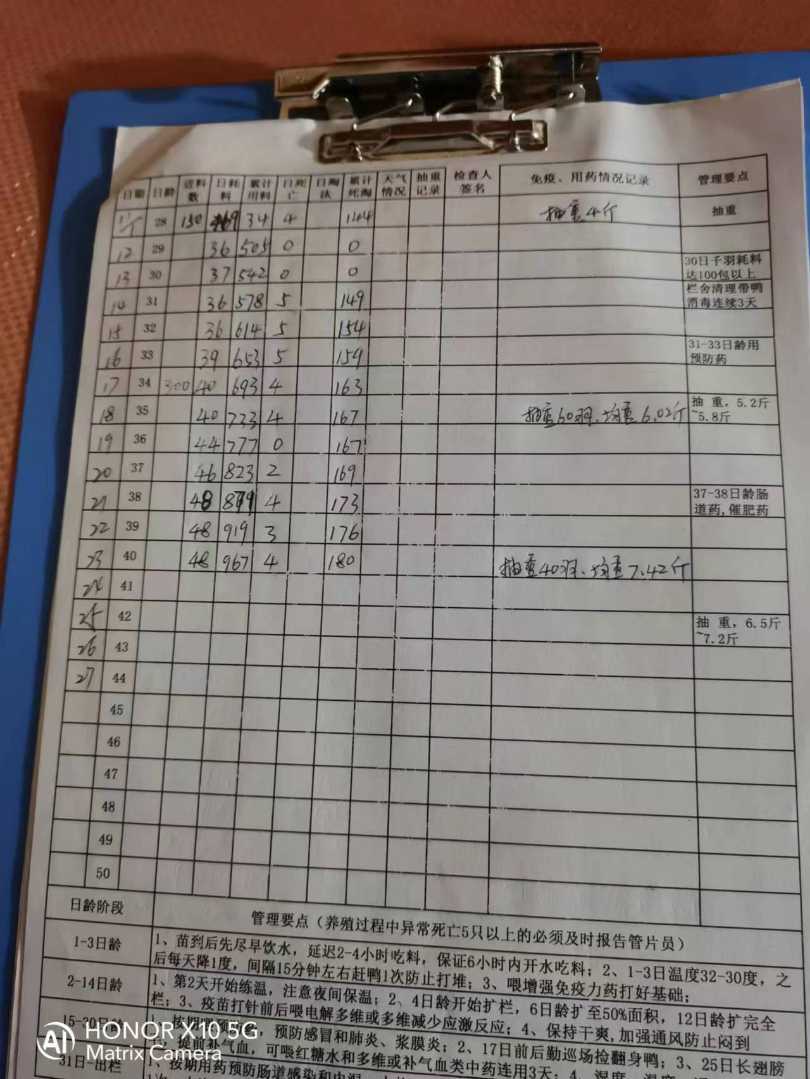 日期 日龄 进料数 日耗料 累计用料 日死亡 日淘汰 累计死淘 天气情况 抽重记录 检查人签名 免疫、用药情况记录 管理要点
28 150 34 4 144 抽重4斤 抽重
12 29 36 505 0 0
13 30 37 542 0 0 30日千羽耗料达100包以上
14 31 36 578 5 149 栏舍清理带鸭消毒连续3天
15 32 36 614 5 154
16 33 39 653 5 159 31-33日龄用预防药
17 34 300 40 693 4 163
18 35 40 733 4 167 抽查60羽、均重6.02斤 抽 重，5.2斤~5.8斤
19 36 44 777 0 167
20 37 46 823 2 169
21 38 48 4 173 37-38日龄肠道药,催肥药
22 39 48 919 3 176
23 40 48 967 4 180 抽查40羽、均重7.42斤
24 41
25 42 抽 重，6.5斤~7.2斤
26 43
27 44
45
46
47
48
49
50
日龄阶段 管理要点（养殖过程中异常死亡5只以上的必须及时报告管片员）
1-3日龄 1、苗到后先尽早饮水，延迟2-4小时吃料，保证6小时内开水吃料；2、1-3日温度32-30度，之
后每天降1度，间隔15分钟左右赶鸭1次防止打堆；3、喂增强免疫力药打好基础；
2-14日龄 1、第2天开始练温，注意夜间保温；2、4日龄开始扩栏，6日龄扩至50%面积，12日龄扩完全
栏；3、疫苗打针前后喂电解多维或多维减少应激反应；4、保持干爽,加强通风防止闷到
预防感冒和肺炎、浆膜炎；2、17日前后勤巡场捡翻身鸭；3、25日长翅膀
提前补气血，可喂红糖水和多维或补气血类中药连用3天；4、
31日-出栏 1、按期用药预防肠道感染
HONOR X10 5G
Matrix Camera